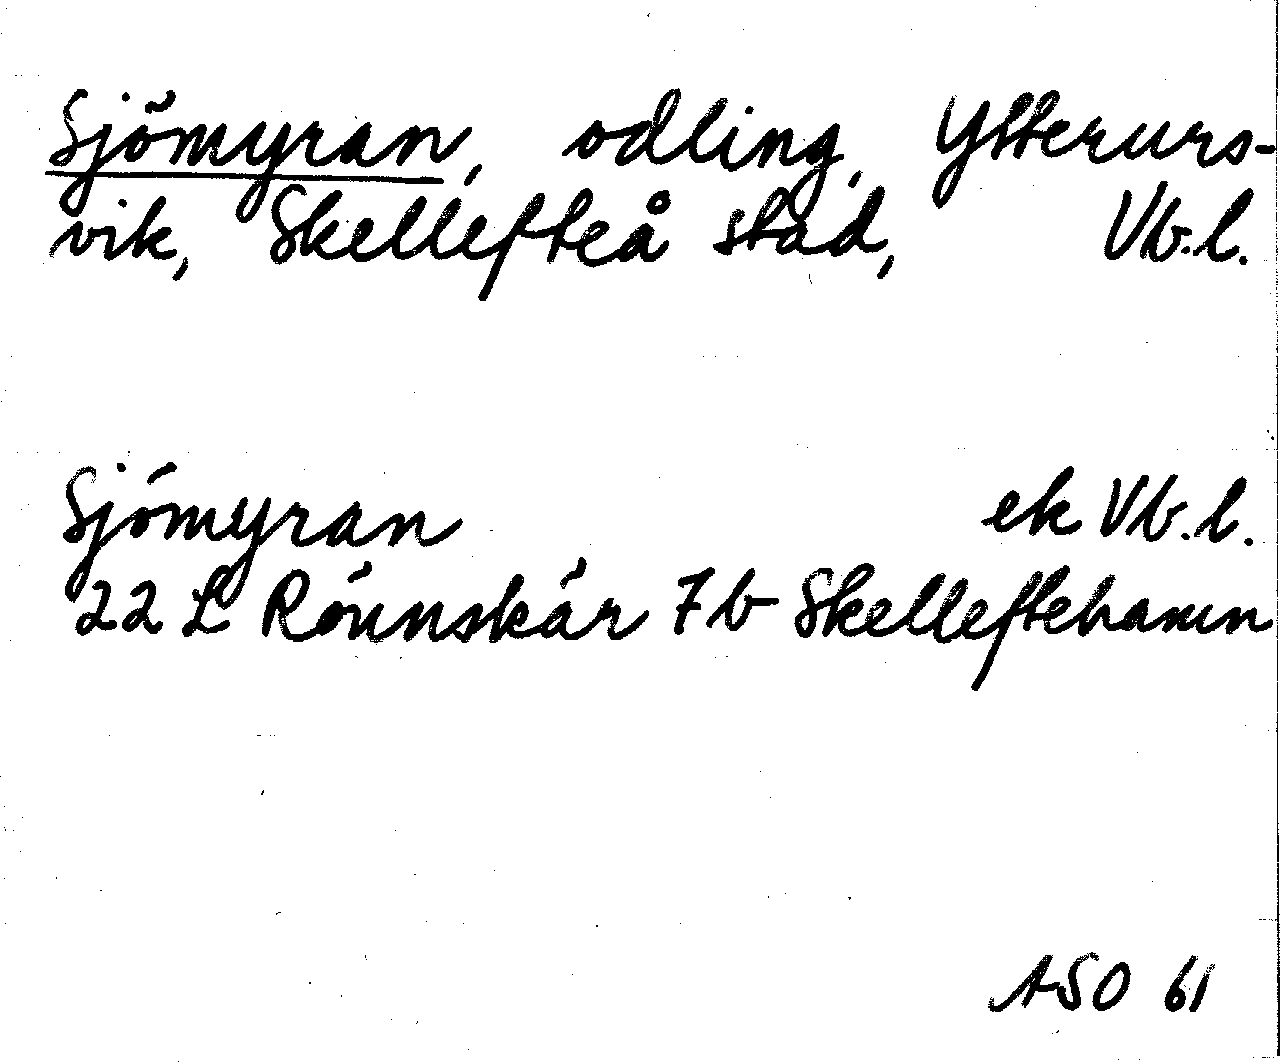 Sjömyran, odling, Ytterurs-
vik, Skellefteå stad, Vb.l.
Sjömyran ek Vb.l.
22 L Rönnskär 7b Skelleftehamn
ASO 61